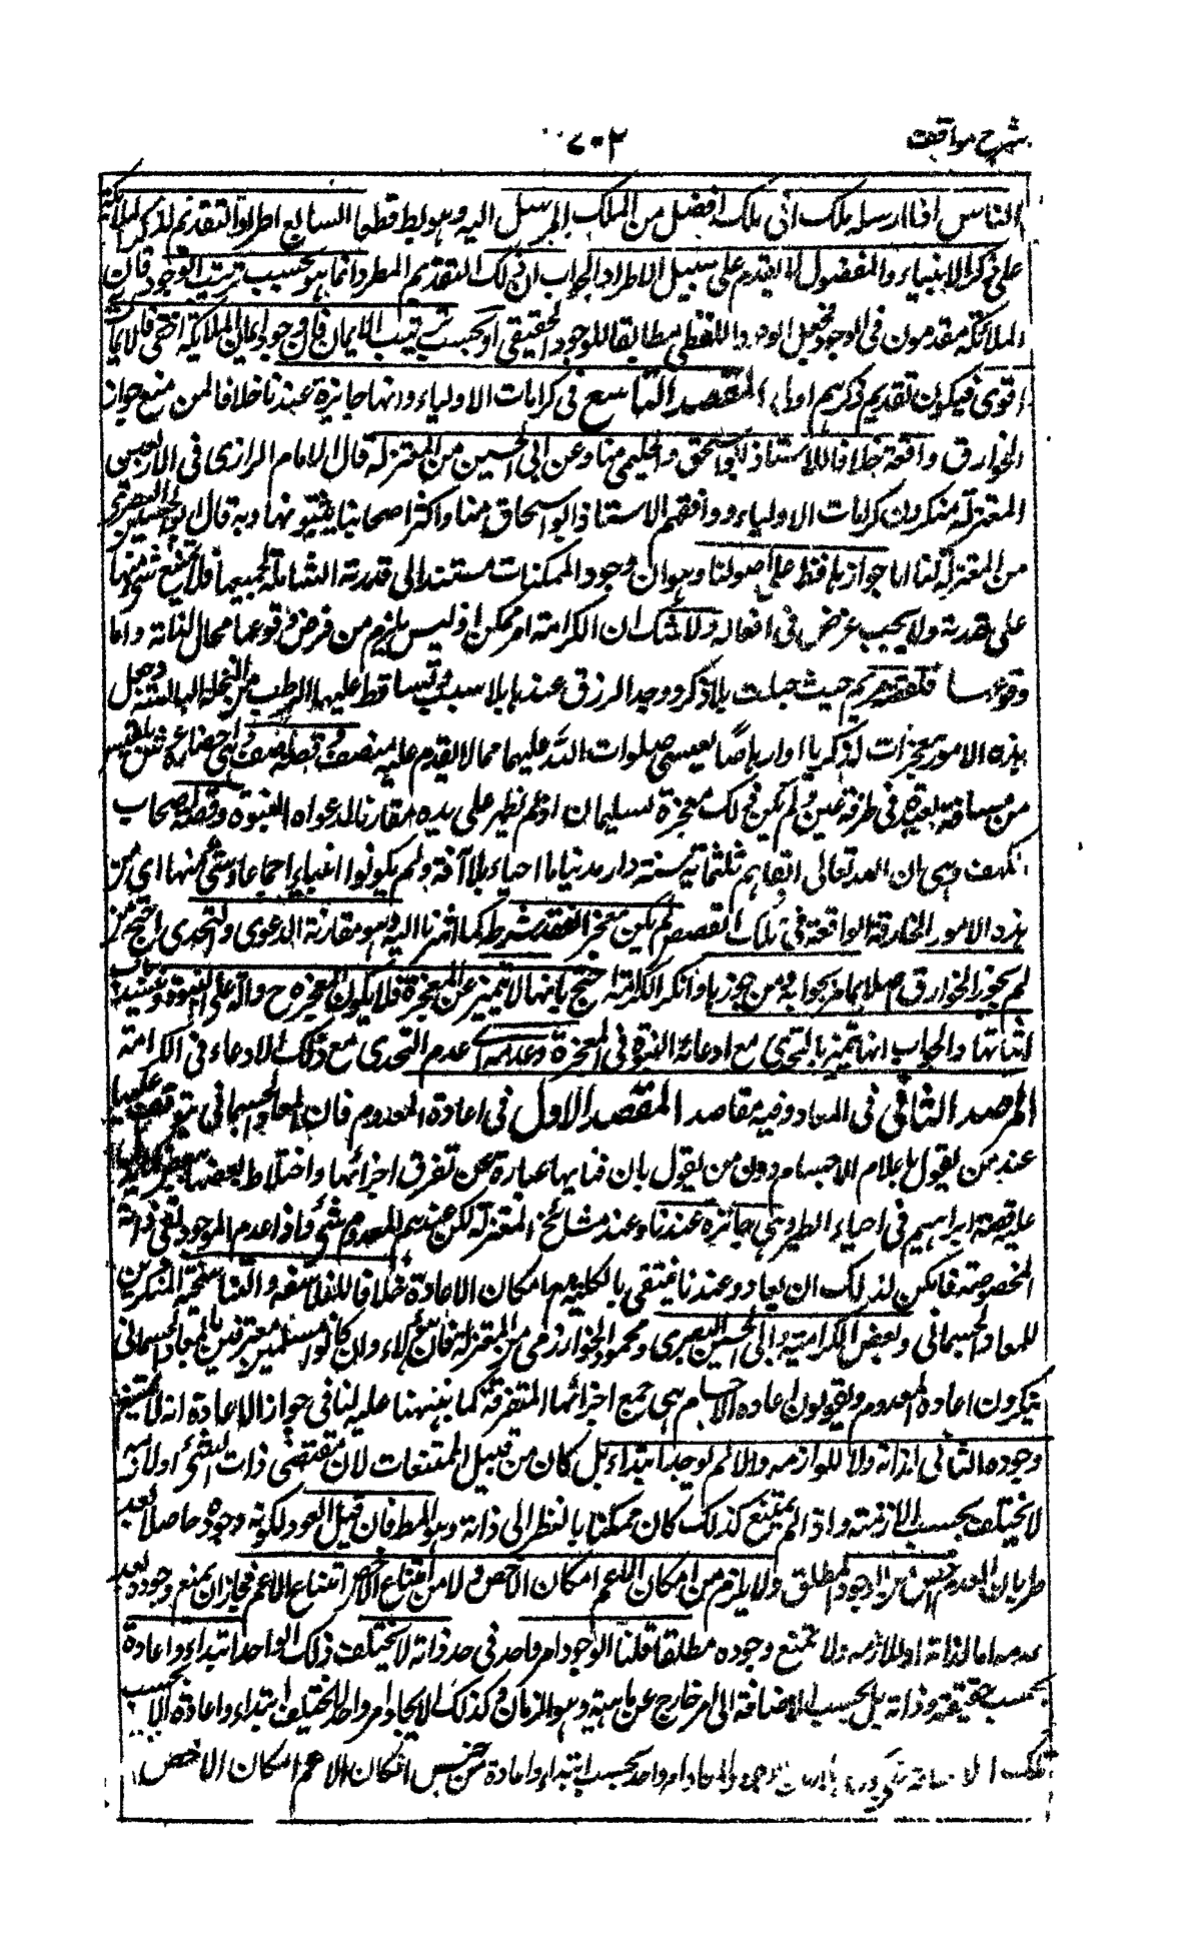 شرح مواقف
٧٠٢
الناس اذا ارسله ملك الى ملك افضل من الملك المرسل اليه وهو بط قطعا السابع اطراد تقديم ذكر الملائكة
على ذكر الانبياء والمفضول لا يقدم على سبيل الاطراد والجواب ان ذلك التقديم المطرد انما هو بحسب ترتيب الوجود فان
الملائكة مقدمون فى الوجود فجعل الوجود اللفظى مطابقا للوجود الحقيقى او بحسب ترتيب الايمان فان وجود ايمان الملائكة اخفى فالايمان
اقوى فيكون تقديم ذكرهم اولى المقصد التاسع فى كرامات الاولياء وانها جائزة عندنا خلافا لمن منع جواز
الخوارق واقعة خلافا للاستاذ ابو اسحق والحليمى منا وعن ابى الحسين من المعتزلة قال الامام الرازى فى الاربعين
المعتزلة منكرون كرامات الاولياء ووافقهم الاستاذ ابو اسحاق منا واكثر اصحابنا يثبتونها وبه قال ابو الحسين البصرى
من المعتزلة لنا اما جوازها فظ على اصولنا وهو ان وجود الممكنات مستند الى قدرته الشاملة لجميعها فلا يمتنع شئ منها
على قدرته ولا يجب غرض فى افعاله ولا شك ان الكرامة امر ممكن اذ ليس يلزم من فرض وقوعها محال لذاته واما
وقوعها فلقصة مريم حيث حبلت بلا ذكر ووجد الرزق عندها بلا سبب وتساقط عليها الرطب من النخلة اليابسة وجعل
هذه الامور معجزات لزكريا او ارهاصا لعيسى صلوات الله عليهما مما لا يقدم عليه منصف وقصة آصف وهى احضاره عرش بلقيس
من مسافة بعيدة فى طرفة عين ولم يكن ذلك معجزة لسليمان اذ لم يظهر على يده مقارنا لدعواه النبوة وقصة اصحاب
الكهف وهى ان الله تعالى ابقاهم ثلثمائة سنة وازيد نياما احياء بلا آفة ولم يكونوا انبياء اجماعا وشئ منها اى من
هذه الامور الخارقة الواقعة فى تلك القصص لم يكن معجزا لفقد شرطه كما اشرنا اليه وهو مقارنة الدعوى والتحدى احتج من
لم يجوز الخوارق اصلا بما مر بجوابه ومن جوزها وانكر الكرامة احتج بانها لا تتميز عن المعجزة فلا يكون المعجزة ح دالة على النبوة وينسد باب
اثباتها والجواب انها تتميز بالتحدى مع ادعاء النبوة فى المعجزة وعدمه اى عدم التحدى مع ذلك الادعاء فى الكرامة
المرصد الثانى فى المعاد وفيه مقاصد المقصد الاول فى اعادة المعدوم فان المعاد الجسمانى يتوقف عليها
عند من يقول باعدام الاجسام دون من يقول بان فنايها عبارة عن تفرق اجزائها واختلاط بعضها ببعض كما يدل
عليه قصة ابراهيم فى احياء الطير وهى جائزة عندنا وعند مشائخ المعتزلة لكن عندهم المعدوم شئ واذا عدم الموجود بقى ذاته
المخصوصة فامكن لذلك ان يعاد وعندنا ينتفى بالكلية مع امكان الاعادة خلافا للفلاسفة والتناسخية المنكرين
للمعاد الجسمانى وبعض الكرامية وابى الحسين البصرى ومحمود الخوارزمى من المعتزلة فان هؤلاء وان كانوا مسلمين معترفين بالمعاد الجسمانى
ينكرون اعادة المعدوم ويقولون اعادة الاجسام هى جمع اجزائها المتفرقة كما نبهنا عليه لنا فى جواز الاعادة انه لا يمتنع
وجوده الثانى لذاته ولا للوازمه والا لم يوجد ابتداء بل كان من قبيل الممتنعات لان مقتضى ذات الشئ او لازمه
لا يختلف بحسب الازمنة واذا لم يمتنع كذلك كان ممكنا بالنظر الى ذاته وهو المط فان قيل العود لكونه وجودا حاصلا بعد
طريان العدم اخص من الوجود المطلق ولا يلزم من امكان الاعم امكان الاخص ولا من امتناع الاخص امتناع الاعم فجاز ان يمتنع وجوده بعد
عدمه اما لذاته او للازمه ولا يمتنع وجوده مطلقا قلنا الوجود امر واحد فى حد ذاته لا يختلف ذلك الواحد ابتداء واعادة
بحسب حقيقته وذاته بل بحسب الاضافة الى امر خارج عن ماهيته وهو الزمان وكذلك الايجاد امر واحد لا يختلف ابتداء واعادة الا بحسب
تلك الاضافة الوجود والايجاد امر واحد بحسب ابتداء واعادة امكان الاعم امكان الاخص